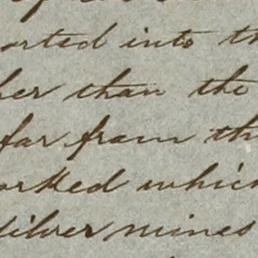 orted into th
her than the
far from th
orked which
silver mines